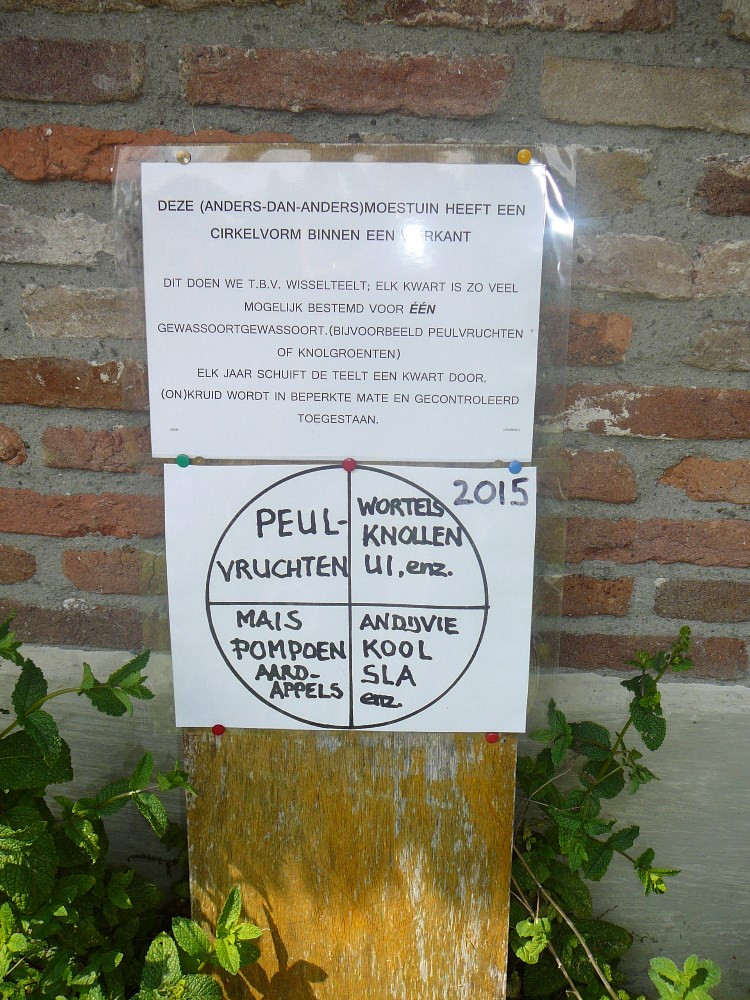 DEZE (ANDERS-DAN-ANDERS)MOESTUIN HEEFT EEN
CIRKELVORM BINNEN EEN VIERKANT
DIT DOEN WE T.B.V. WISSELTEELT; ELK KWART IS ZO VEEL
MOGELIJK BESTEMD VOOR ÉÉN
GEWASSOORTGEWASSOORT.(BIJVOORBEELD PEULVRUCHTEN
OF KNOLGROENTEN)
ELK JAAR SCHUIFT DE TEELT EEN KWART DOOR.
(ON)KRUID WORDT IN BEPERKTE MATE EN GECONTROLEERD
TOEGESTAAN.
2015
PEUL-
VRUCHTEN
WORTELS
KNOLLEN
UI, enz.
MAIS
POMPOEN
AARD-
APPELS
ANDIJVIE
KOOL
SLA
enz.